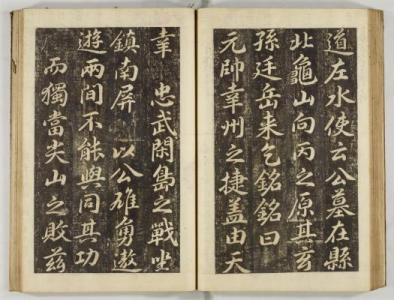 道左水使云公墓在縣
北龜山向丙之原其玄
孫廷岳来乞銘銘曰
元帥幸州之捷盖由天
幸 忠武閑島之戰坐
鎮南屏 以公雄勇遨
遊兩間不能與同其功
而獨當尖山之敗茲